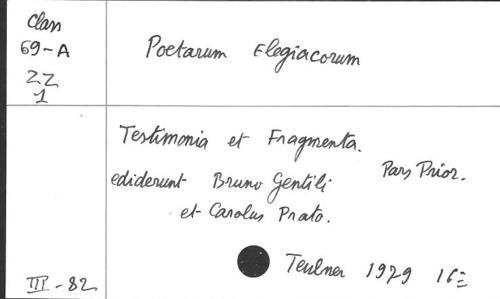 Class
69-A
ZZ
1
Poetarum Elegiacorum
Testimonia et Fragmenta.
ediderunt Bruno Gentili Pars Prior.
et Carolus Prato.
Teubner 1979
III-82